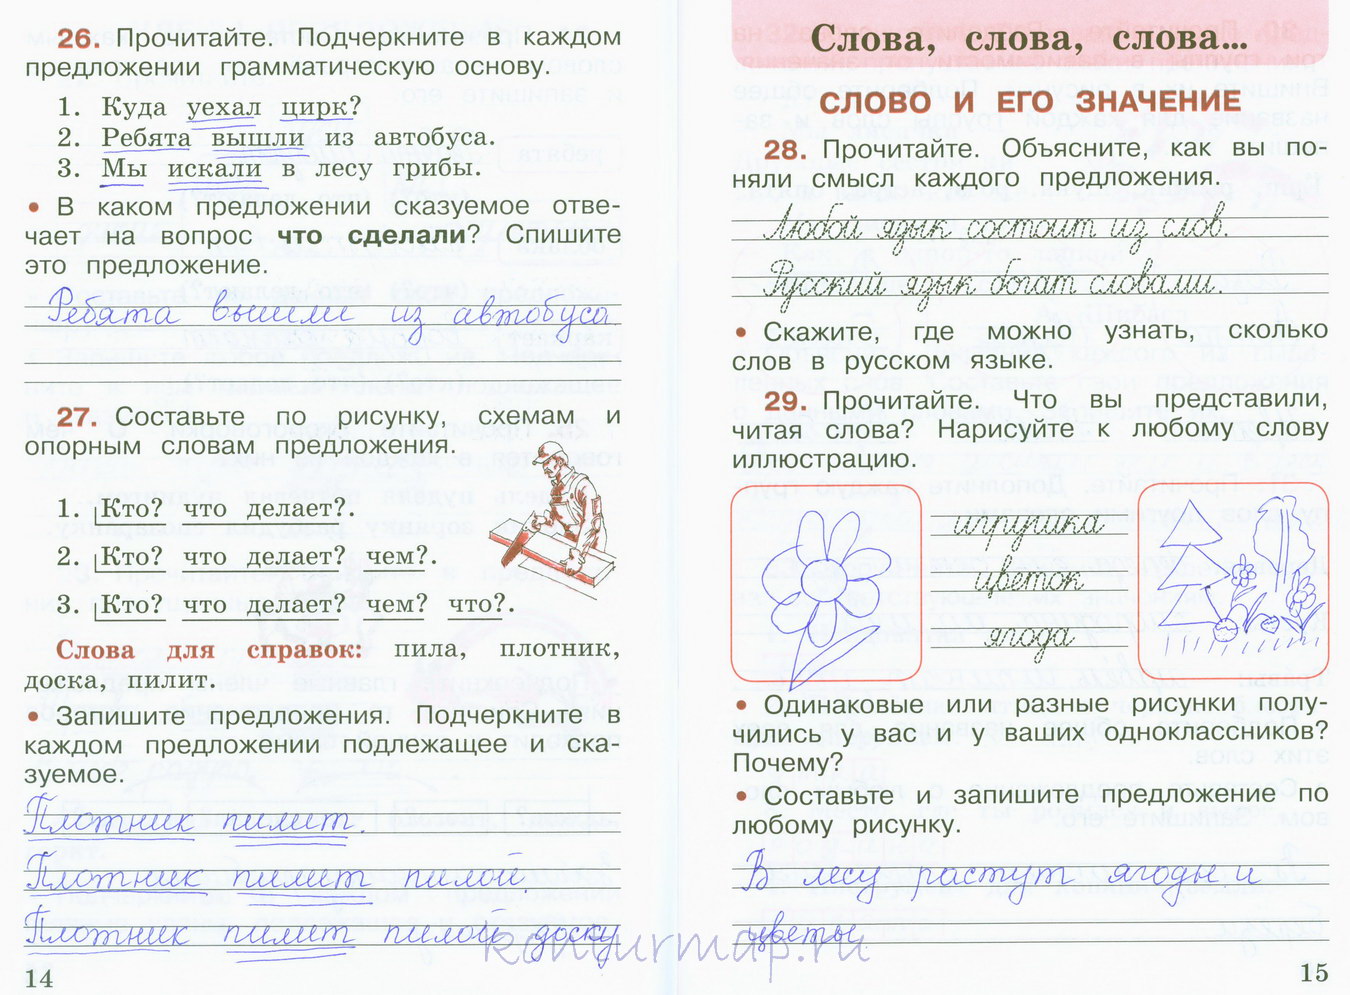 26. Прочитайте. Подчеркните в каждом
предложении грамматическую основу.
1. Куда уехал цирк?
2. Ребята вышли из автобуса.
3. Мы искали в лесу грибы.
• В каком предложении сказуемое отве-
чает на вопрос что сделали? Спишите
это предложение.
Ребята вышли из автобуса
27. Составьте по рисунку, схемам и
опорным словам предложения.
1. Кто? что делает?.
2. Кто? что делает? чем?.
3. Кто? что делает? чем? что?.
Слова для справок: пила, плотник,
доска, пилит.
• Запишите предложения. Подчеркните в
каждом предложении подлежащее и ска-
зуемое.
Плотник пилит.
Плотник пилит пилой.
Плотник пилит пилой доску
14
Слова, слова, слова...
СЛОВО И ЕГО ЗНАЧЕНИЕ
28. Прочитайте. Объясните, как вы по-
няли смысл каждого предложения.
Любой язык состоит из слов.
Русский язык богат словами.
• Скажите, где можно узнать, сколько
слов в русском языке.
29. Прочитайте. Что вы представили,
читая слова? Нарисуйте к любому слову
иллюстрацию.
игрушка
цветок
ягода
• Одинаковые или разные рисунки полу-
чились у вас и у ваших одноклассников?
Почему?
• Составьте и запишите предложение по
любому рисунку.
В лесу растут ягоды и
цветы.
konturmap.ru
15